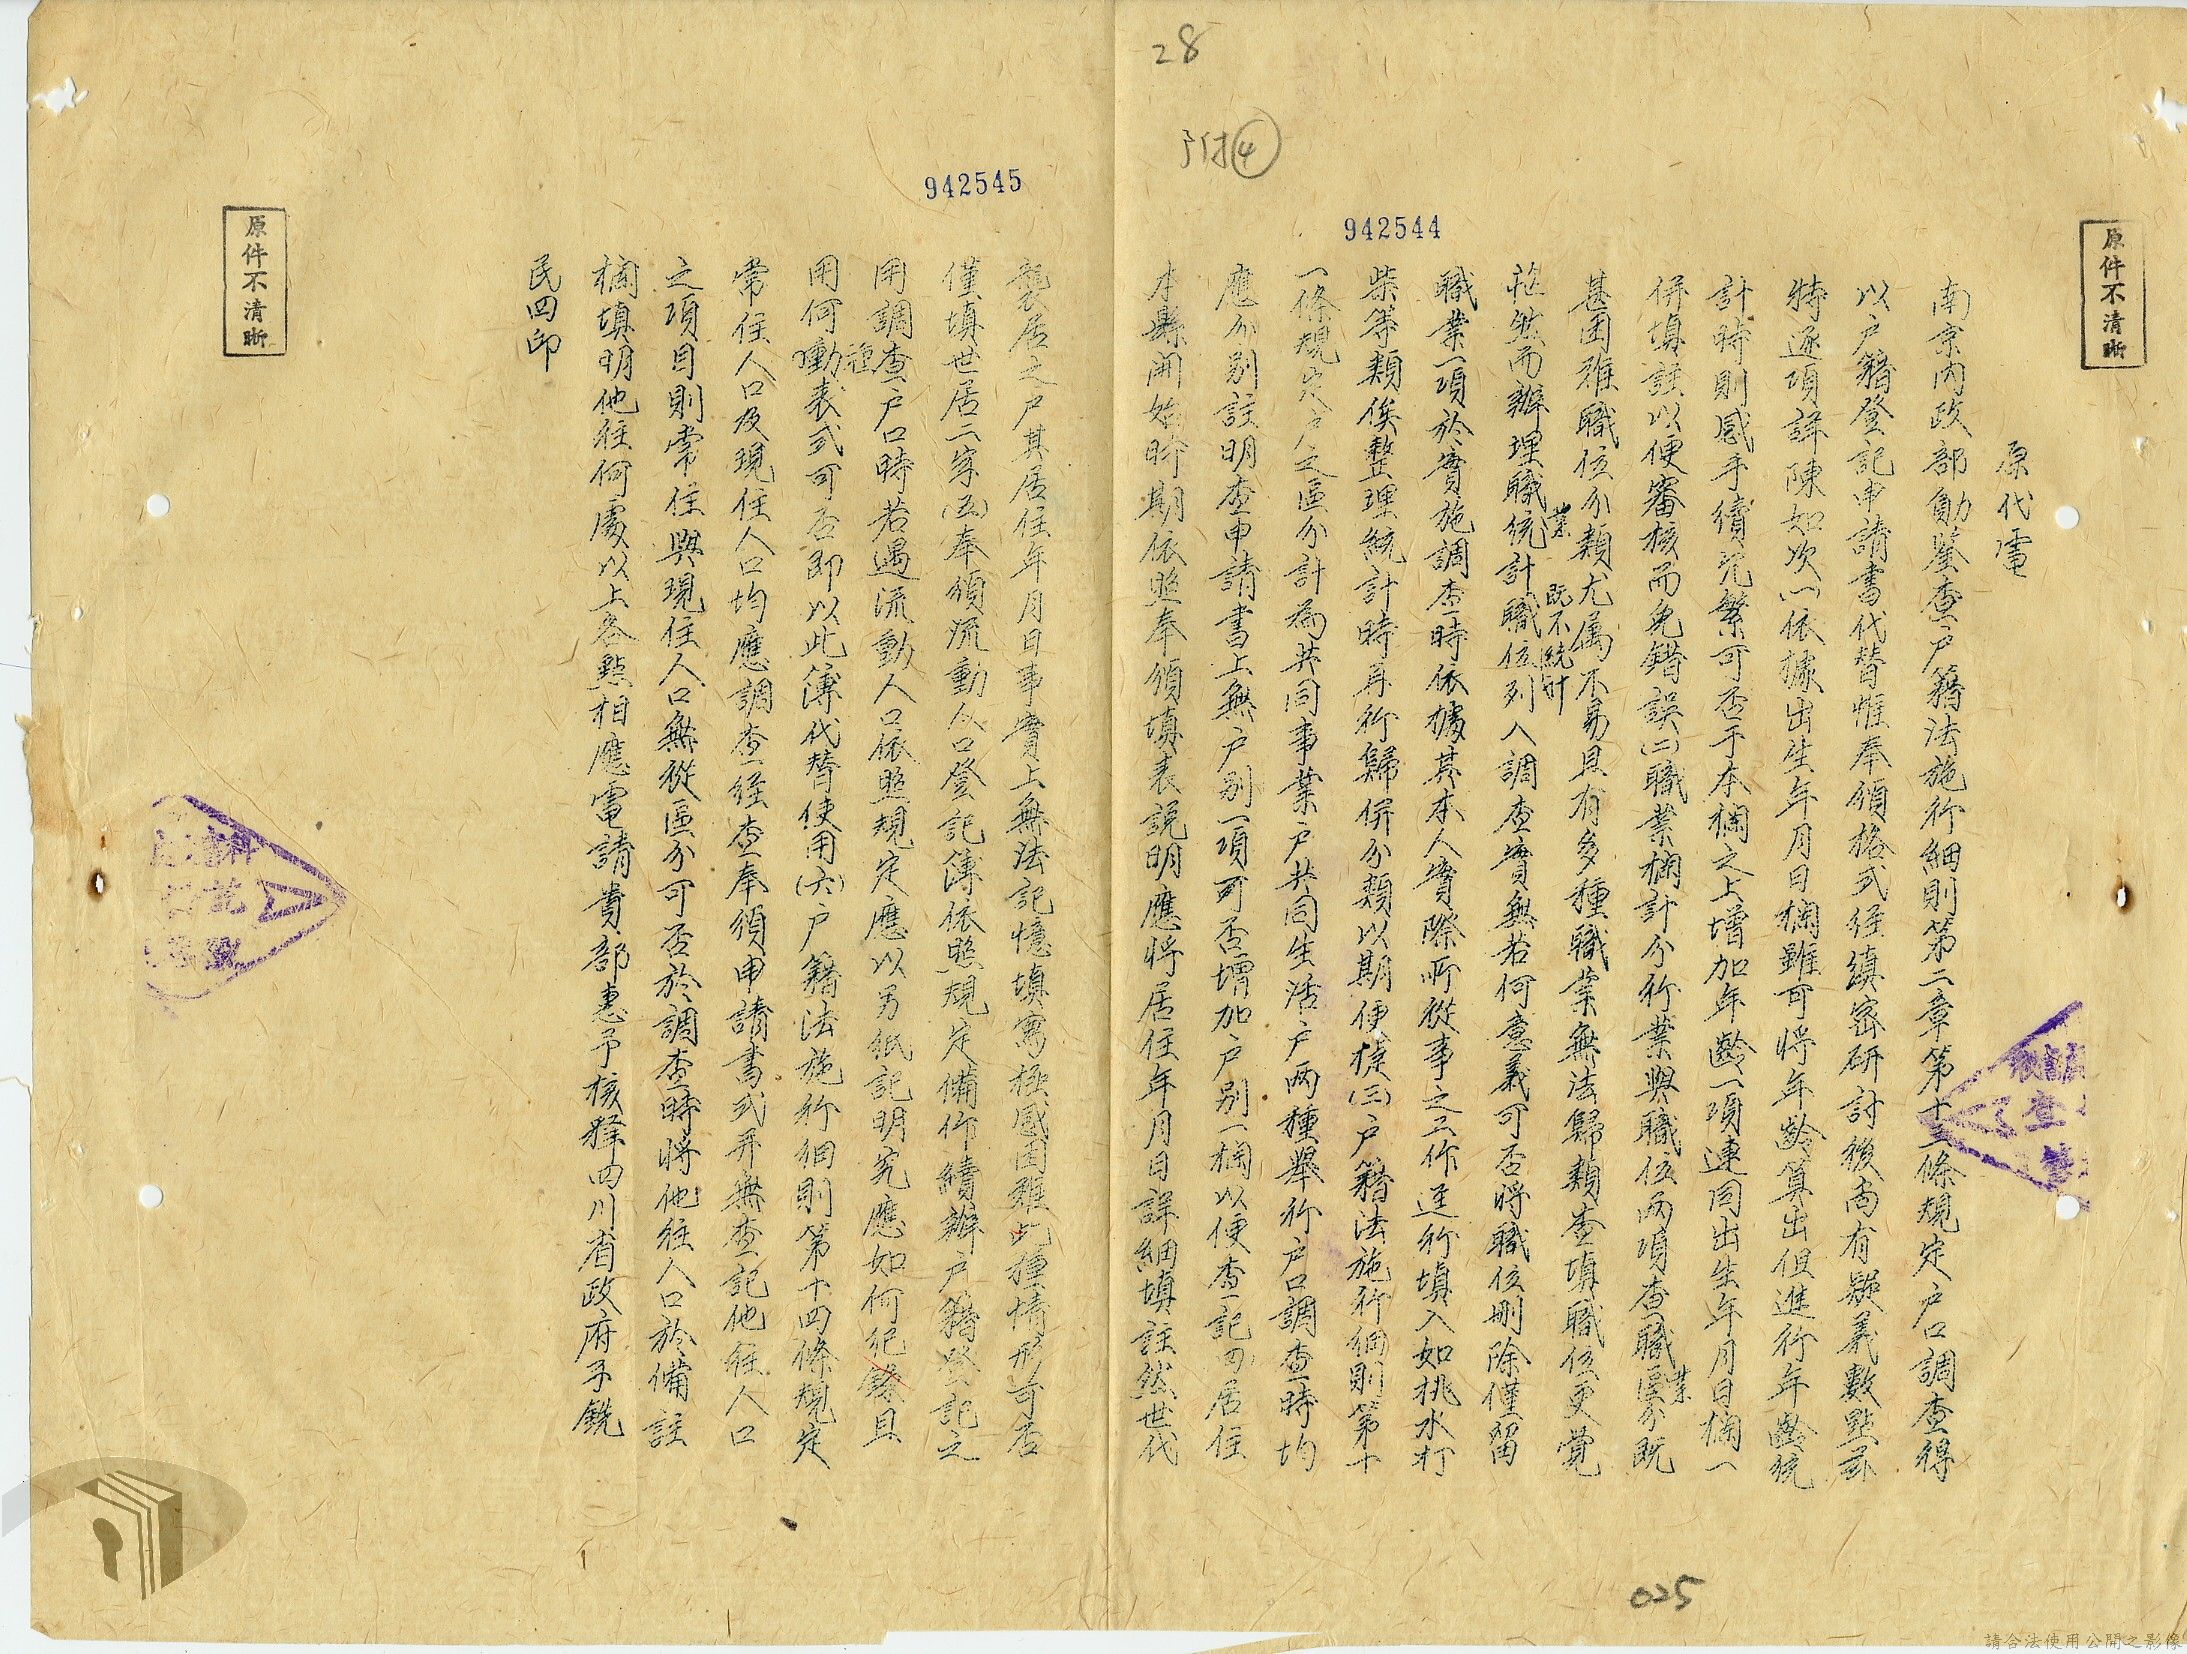 28
附④
942544
原件不清晰
原代電
南京內政部勛鑒查户籍法施行細則第二章第十三條規定户口調查得
以户籍登記申請書代替惟奉頒格式经縝密研討後尚有疑義數點爰
特逐項詳陳如次(一)依據出生年月日欄雖可將年齡算出但進行年齡統
計時則感手續冗繁可否于本欄之上增加年齡一項連同出生年月日欄一
併填註以便審核而免錯誤(二)職業欄計分行業與職位兩項查職業區分既
甚困难職位分類尤属不易且有多種職業無法歸類查填職位更覺
茫然而辦理職業統計職位既不統計列入調查實無若何意義可否將職位刪除僅留
職業一項於實施調查時依據其本人實際所從事之工作逕行填入如挑水打
柴等類俟整理統計時再行歸併分類以期便捷(三)户籍法施行細則第十
一條規定户之區分計為共同事業户共同生活户兩種舉行户口調查時均
應分別註明查申請書上無户别一項可否增加户别一欄以便查記(四)居住
本縣開始時期依照奉頒填表説明應將居住年月日詳細填註然世代
942545
襲居之户其居住年月日事實上無法記憶填寫極感困難此種情形可否
僅填世居二字(五)奉頒流動人口登記簿依照規定備作續辦户籍登記之
用調查户口時若遇流動人口依照規定應以另紙記明究應如何紀錄且
用何種動表式可否即以此簿代替使用(六)户籍法施行細則第十四條規定
常住人口及現住人口均應調查经查奉頒申請書式并無查記他往人口
之項目則常住與現住人口無從區分可否於調查時將他往人口於備註
欄填明他往何處以上各點相應電請貴部惠予核釋四川省政府子銑
民四印
原件不清晰
025
請合法使用公開之影像